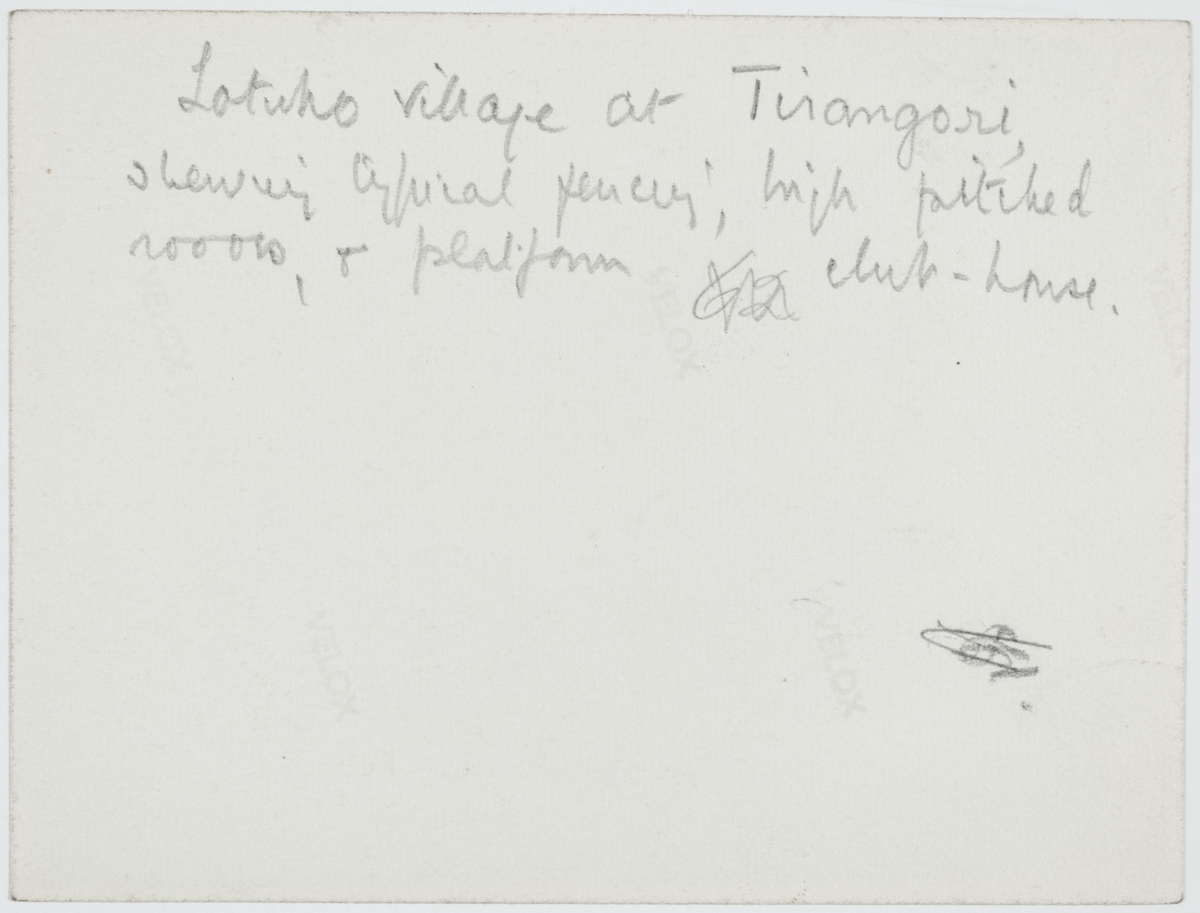 Lotuho village at Tirangori,
shewing typical fencing, high pitched
roofs, & platform club-house.
VELOX
VELOX
VELOX
VELOX
VELOX